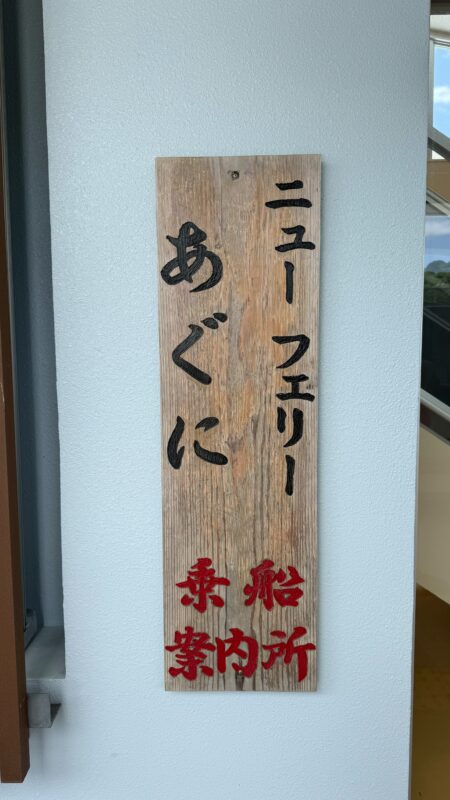 ニューフェリー
あぐに
乗船
案内所